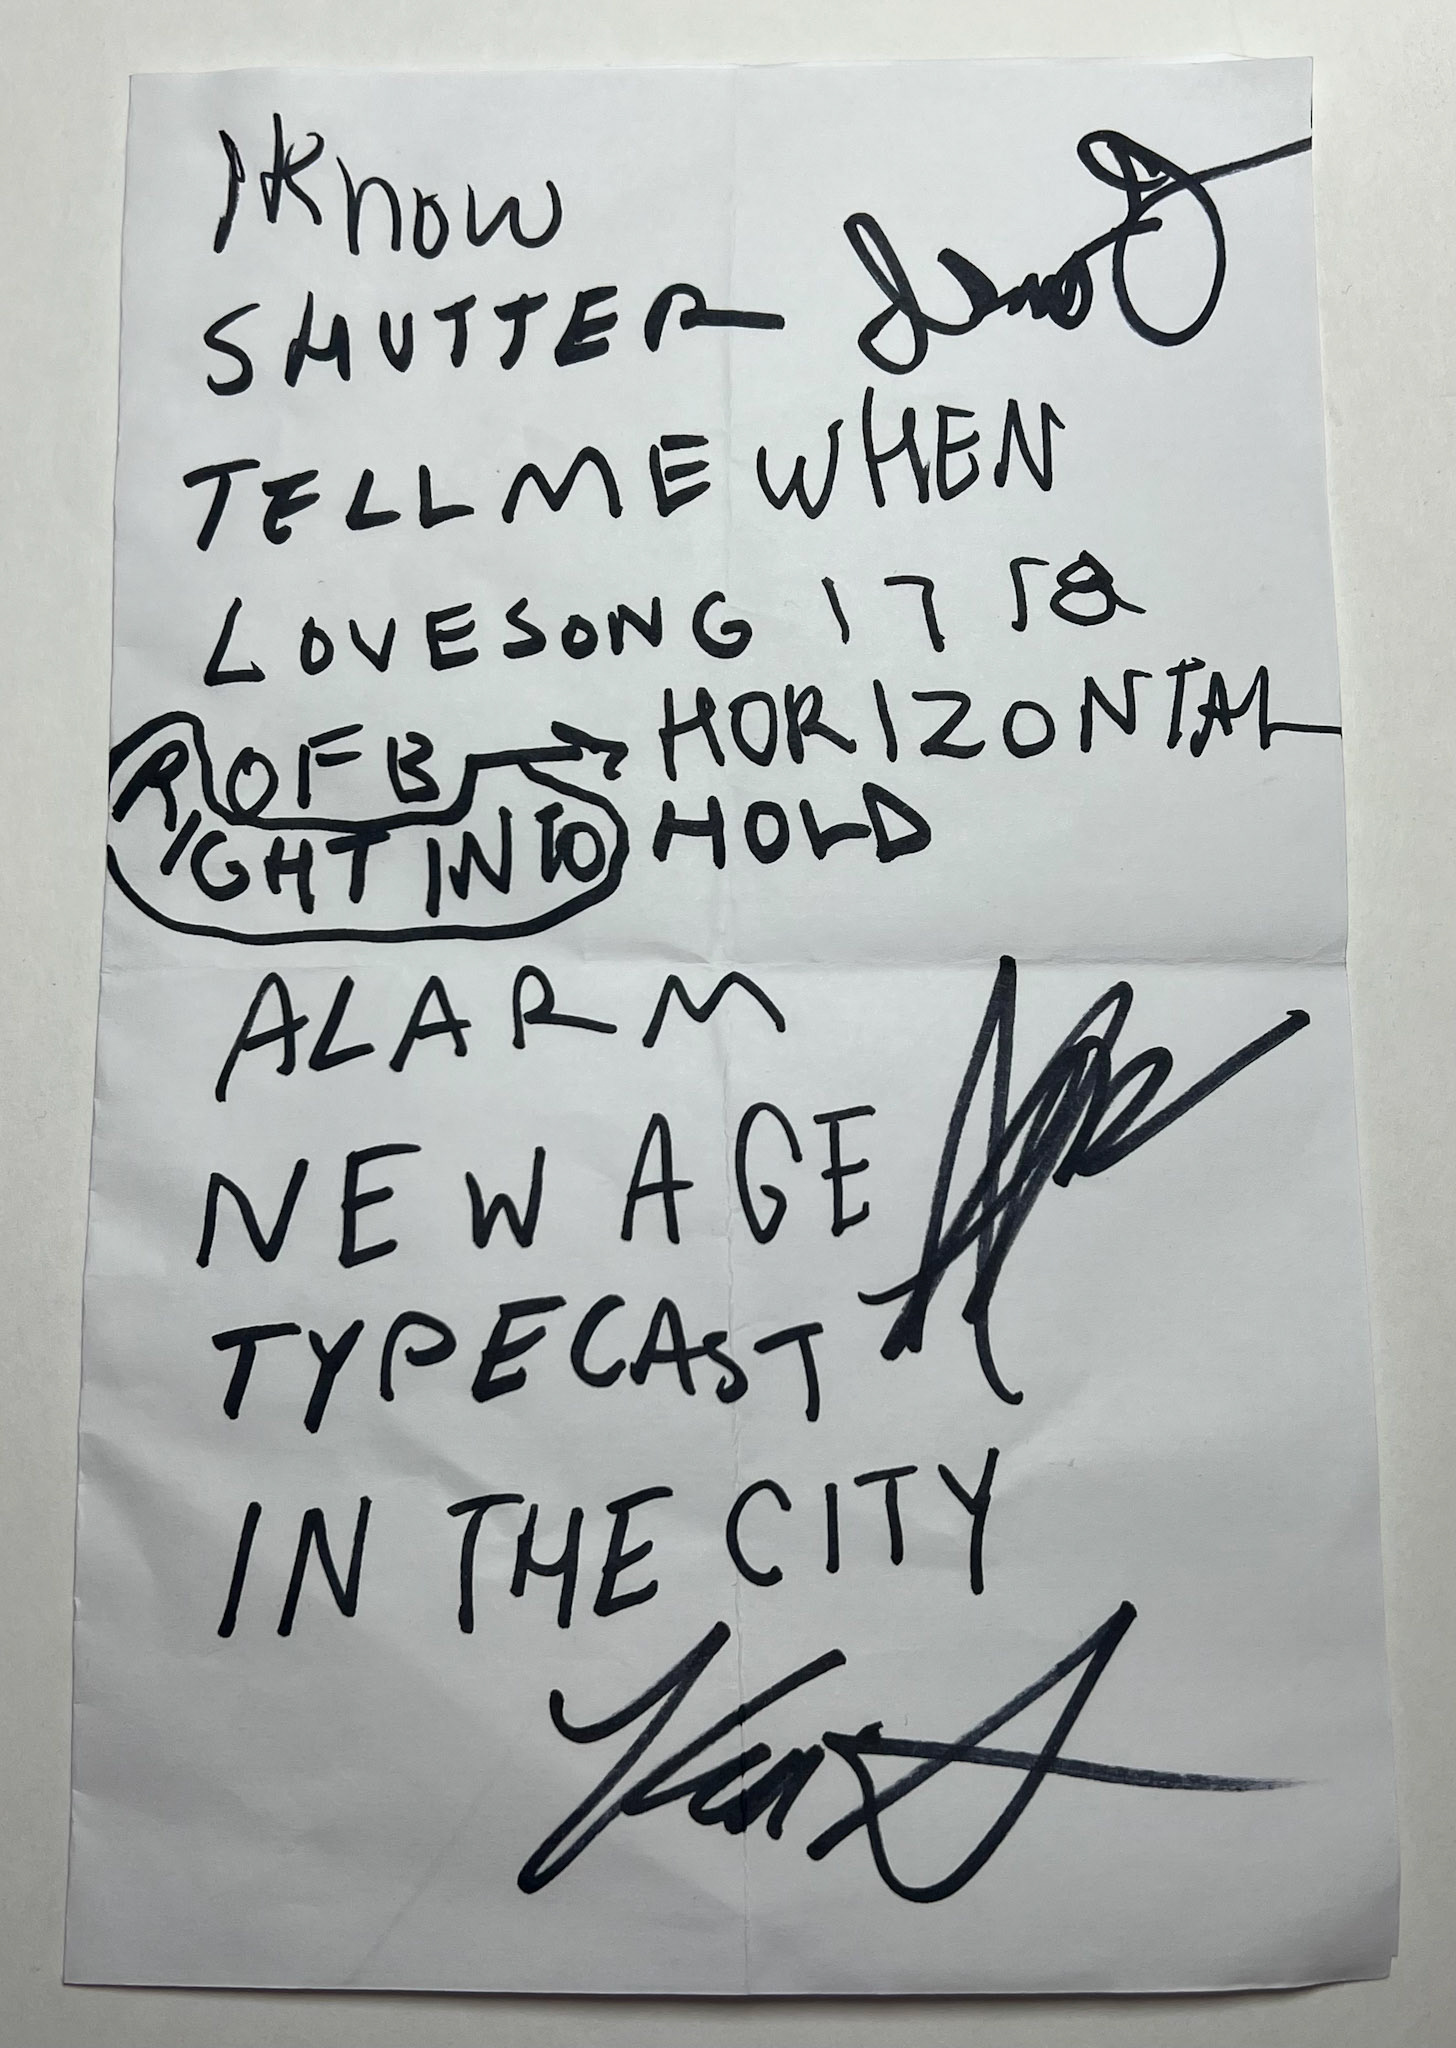 I KNOW
SHUTTER
TELL ME WHEN
LOVESONG 17 58
OFB → HORIZONTAL
RIGHT INTO HOLD
ALARM
NEW AGE
TYPECAST
IN THE CITY